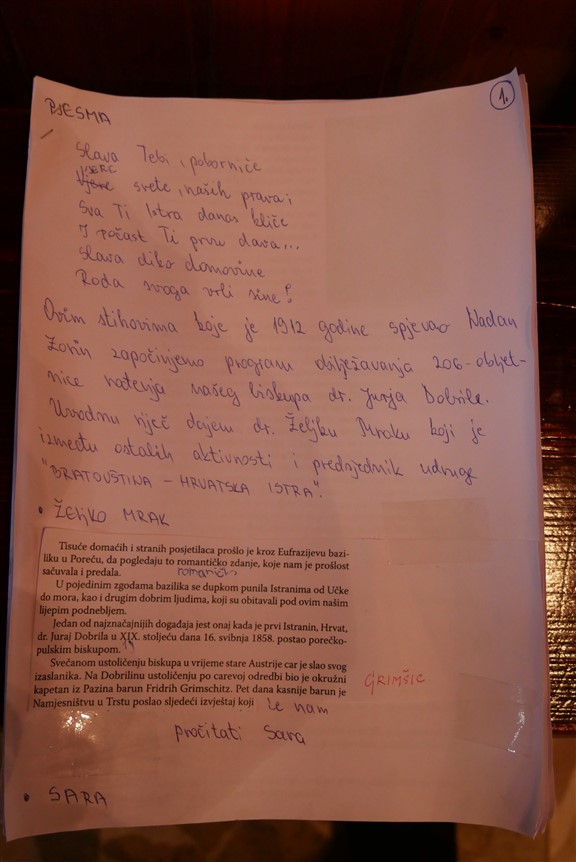 PJESMA
1.
Slava Tebi, poborniče
VJERE
Vjere svete, naših prava;
Sva Ti Istra danas kliče
I počast Ti prvu dava...
Slava diko domovine
Roda svoga vrli sine!
Ovim stihovima koje je 1912 godine spjevao Nadan
Žorin započinjemo program obilježavanja 206-obljet-
nice rođenja našeg biskupa dr. Jurja Dobrile.
Uvodnu riječ dajem dr. Željku Mraku koji je
između ostalih aktivnosti i predsjednik udruge
"BRATOVŠTINA - HRVATSKA ISTRA".
• ŽELJKO MRAK
Tisuće domaćih i stranih posjetilaca prošlo je kroz Eufrazijevu bazi-
liku u Poreču, da pogledaju to romantičko zdanje, koje nam je prošlost
sačuvala i predala.
U pojedinim zgodama bazilika se dupkom punila Istranima od Učke
do mora, kao i drugim dobrim ljudima, koji su obitavali pod ovim našim
lijepim podnebljem.
Jedan od najznačajnijih događaja jest onaj kada je prvi Istranin, Hrvat,
dr. Juraj Dobrila u XIX. stoljeću dana 16. svibnja 1858. postao porečko-
pulskim biskupom.
19
Svečanom ustoličenju biskupa u vrijeme stare Austrije car je slao svog
izaslanika. Na Dobrilinu ustoličenju po carevoj odredbi bio je okružni
kapetan iz Pazina barun Fridrih Grimschitz. Pet dana kasnije barun je
GRIMŠIC
Namjesništvu u Trstu poslao sljedeći izvještaj koji će nam
pročitati Sara
• SARA